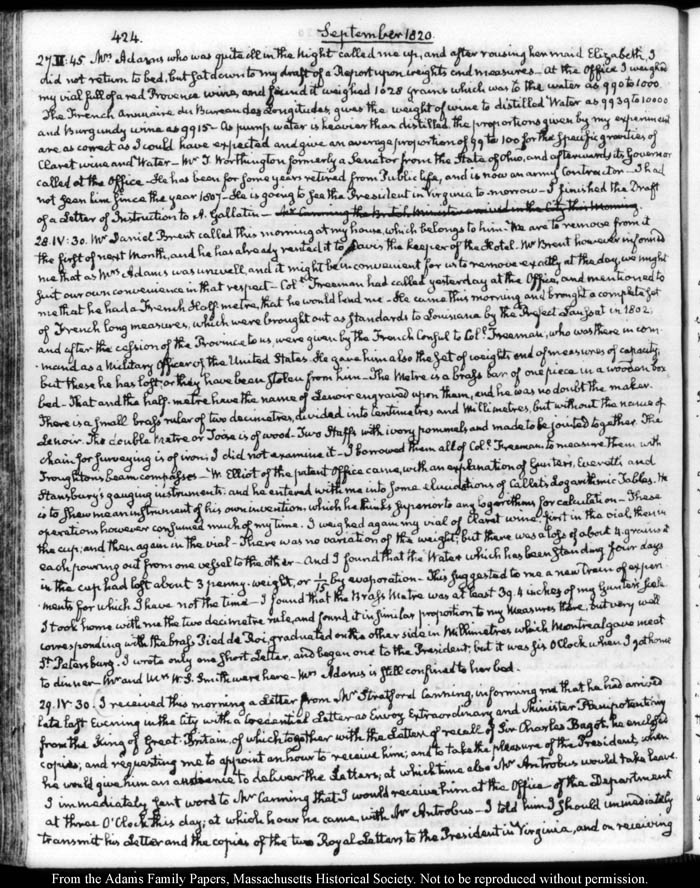 424.
September 1820.
27. II:45. Mrs. Adams who was quite ill in the Night called me up, and after rousing her maid Elizabeth, I
did not return to bed, but sat down to my draft of a Report upon weights and measures — At the Office I weighed
my vial full of a red Provence wine, and found it weighed 1028 grains which was to the water as 990 to 1000
The French Annuaire du Bureau des Longitudes, gives the weight of wine to distilled Water as 9939 to 10000
and Burgundy wine as 9915 — As pump water is heavier than distilled the proportions given by my experiment
are as correct as I could have expected and give an average proportion of 99 to 100 for the specific gravities of
Claret wine and Water — Mr. T. Worthington formerly a Senator from the State of Ohio, and afterwards its Governor
called at the Office — He has been for some years retired from Public life, and is now an army Contractor — I had
not seen him since the year 1807 — He is going to see the President in Virginia to-morrow — I finished the Draft
of a Letter of Instruction to A. Gallatin — Mr. Canning the British Minister arrived in the City this Morning.
28. IV:30. Mr. Daniel Brent called this morning at my house, which belongs to him. We are to remove from it
the first of next Month, and he has already rented it to Davis the keeper of the Hotel. Mr. Brent however informed
me that as Mrs. Adams was unwell, and it might be inconvenient for us to remove exactly at the day, we might
suit our own convenience in that respect — Coll. Freeman had called yesterday at the Office, and mentioned to
me that he had a French Half-metre, that he would lend me — He came this morning and brought a complete set
of French long measures, which were brought out as Standards to Louisiana by the Prefect Laussat in 1802,
and after the cession of the Province to us, were given by the French Consul to Coll. Freeman, who was there in com-
-mand as a Military Officer of the United States. He gave him also the set of weights and of measures of capacity,
but these he has lost, or they have been stolen from him — The Metre is a brass bar of one piece in a wooden box
bed — That and the half-metre have the name of Lenoir engraved upon them, and he was no doubt the maker.
There is a small brass ruler of two decimetres, divided into Centimetres and Millimetres, but without the name of
Lenoir. The double Metre or Toise is of wood — Two Staffs with ivory pommels, and made to be jointed together. The
chain for surveying is of iron; I did not examine it — I borrowed them all of Coll. Freeman to measure them with
Troughton's beam compasses — W. Elliot of the patent Office came, with an explanation of Gunter's, Everett's and
Stansbury's gauging instruments; and he entered with me into some elucidations of Callet's Logarithmic Tables. He
is to shew me an instrument of his own invention, which he thinks superior to any logarithms for calculation — These
operations however consumed much of my time. I weighed again my vial of Claret wine, first in the vial, then in
the cup, and then again in the vial — There was no variation of the weight, but there was a loss of about 4 grains at
each pouring out from one vessel to the other — And I found that the Water which has been standing four days
in the cup had lost about 3 penny-weight, or 1/15 by evaporation — This suggested to me a new train of experi-
-ments for which I have not the time — I found that the Brass Metre was at least 39.4 inches of my Gunter's scale
I took home with me the two decimetre rule, and found it in similar proportion to my Measures there, but very well
corresponding with the brass Pied de Roi, graduated on the other side in Millimetres which Montreal gave me at
St. Petersburg. I wrote only one short Letter, and began one to the President, but it was six O'Clock when I got home
to dinner — Mr. and Mrs. W. S. Smith were here — Mrs. Adams is still confined to her bed.
29. IV:30. I received this morning a Letter from Mr. Stratford Canning, informing me that he had arrived
late last Evening in the City with a Credential Letter as Envoy Extraordinary and Minister Plenipotentiary
from the King of Great-Britain, of which together with the Letter of recall of Sir Charles Bagot, he enclosed
copies; and requesting me to appoint an hour to receive him; and to take the pleasure of the President, when
he would give him an audience to deliver the Letters; at which time also Mr. Antrobus would take leave.
I immediately sent word to Mr. Canning that I would receive him at the Office of the Department
at three O'Clock this day; at which hour he came, with Mr. Antrobus — I told him I should immediately
transmit his Letter and the copies of the two Royal Letters to the President in Virginia, and on receiving
From the Adams Family Papers, Massachusetts Historical Society. Not to be reproduced without permission.